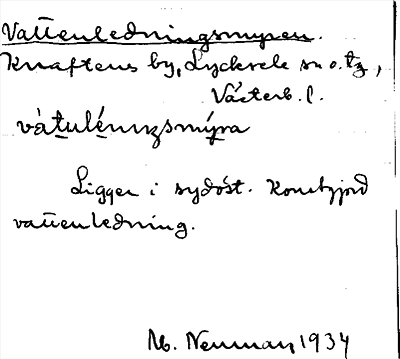 Vattenledningsmyren.
Knaftens by, Lycksele sn o. tg,
Västerb. l.
vàtulénıŋsmýra
Ligger i sydöst. Konstgjord
vattenledning.
M. Neuman 1934